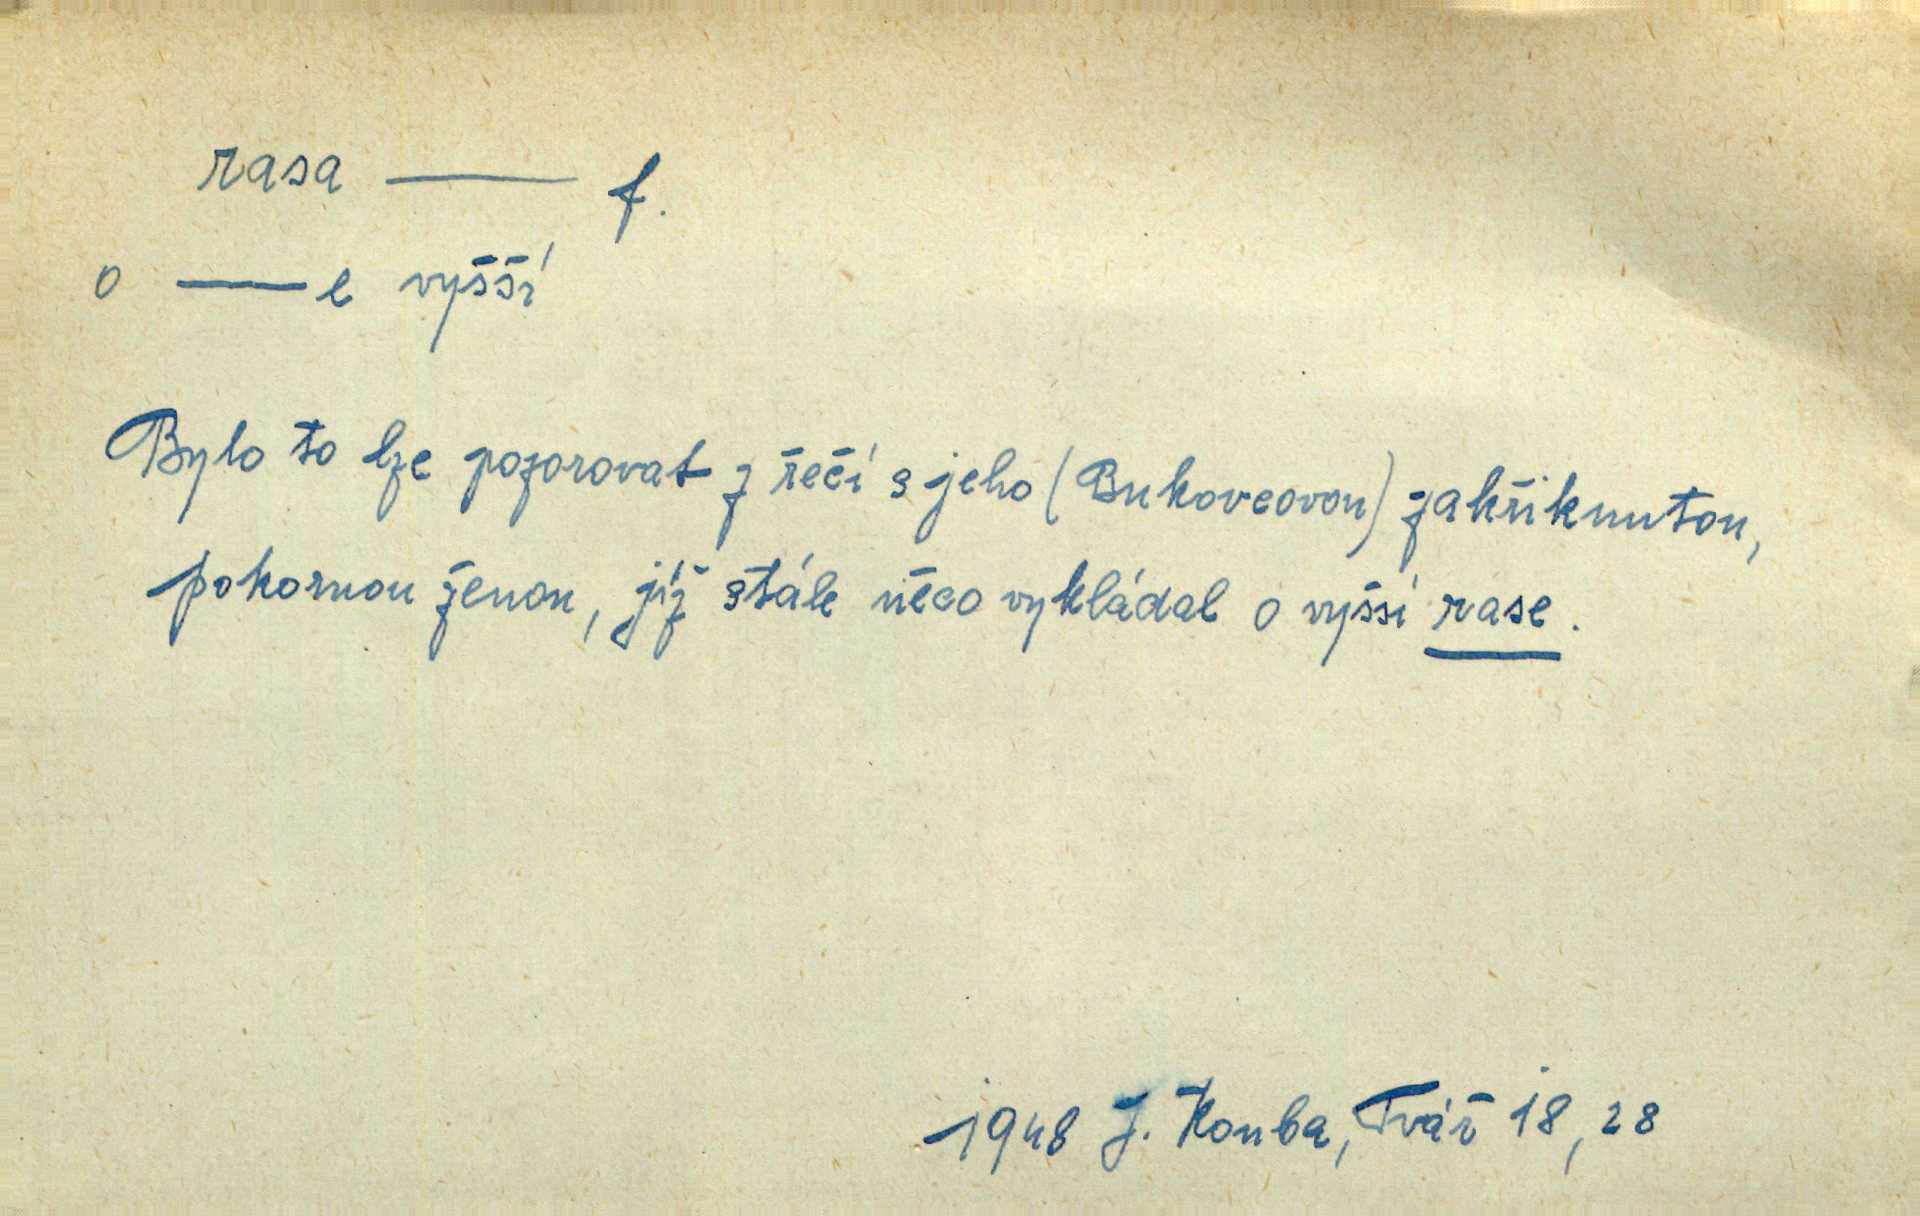 rasa —— f.
o ——e vyšší
Bylo to lze pozorovat z řečí s jeho (Bukovcovou) zakřiknutou,
pokornou ženou, jíž stále něco vykládal o vyšší rase.
1948 J. Kouba, Tvář 18, 28